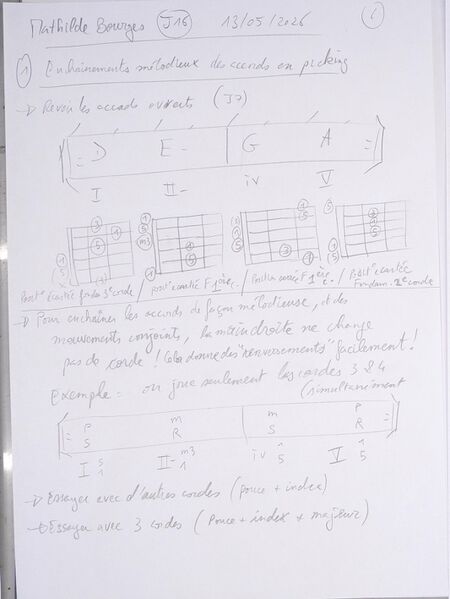 Mathilde Bourges J16 13/05/2026 1
1 Enchaînements mélodieux des accords en picking
→ Revoir les accords ouverts (J2)
D E- G A
I II- IV V
3 1 5 1 5 m3 1 5 1 5 3 1 5 1 5 1
Post° écartée fonda 3° corde / post° écartée F 1ère c. / Position écartée 1ère c. / Post° écartée
Fondam. 2° corde
→ Pour enchaîner les accords de façon mélodieuse, et des
mouvements conjoints, la main droite ne change
pas de corde ! Cela donne des "renversements" facilement !
Exemple = on joue seulement les cordes 3 & 4
(simultanément
P m m P
S R S R
I 5 1 II- m3 1 IV 1 5 V 1 5
→ Essayer avec d'autres cordes (pouce + index)
→ Essayer avec 3 cordes (Pouce + index + majeur)